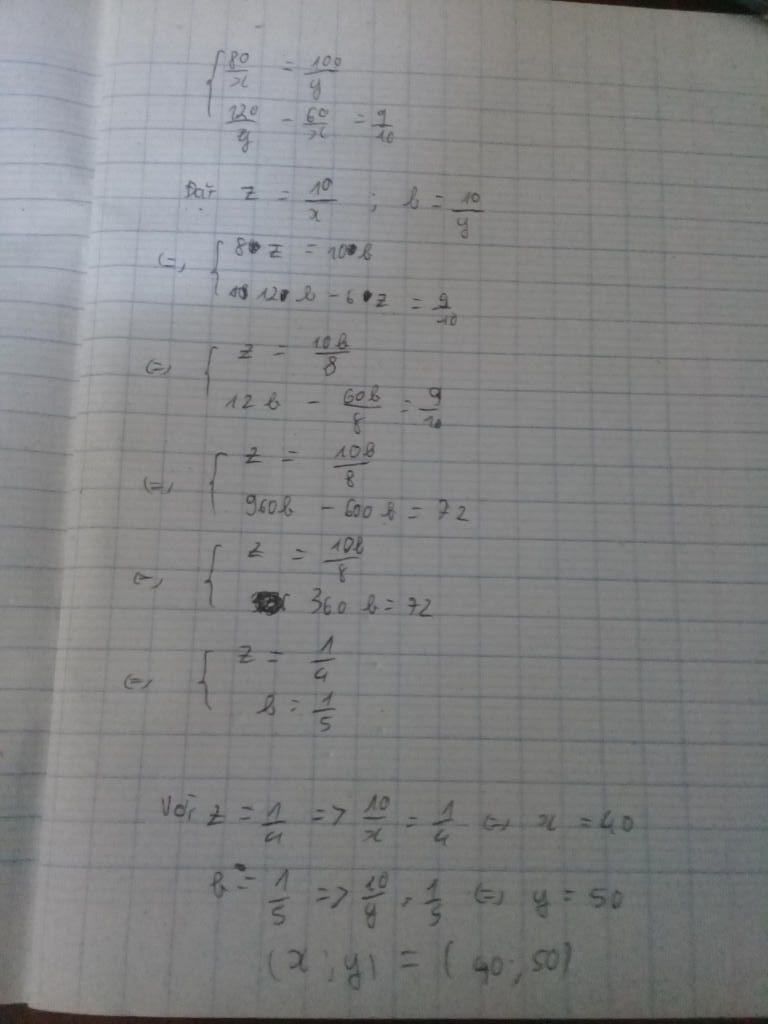 { 80/x = 100/y
120/y - 60/x = 9/10
Đặt z = 10/x ; b = 10/y
(=) { 8 z = 10 b
12 b - 6 z = 9/10
(=) { z = 10b/8
12 b - 60b/8 = 9/10
(=) { z = 10b/8
960b - 600 b = 72
(=) { z = 10b/8
360 b = 72
(=) { z = 1/4
b = 1/5
Với z = 1/4 => 10/x = 1/4 (=) x = 40
b = 1/5 => 10/y = 1/5 (=) y = 50
(x ; y) = ( 40 ; 50)